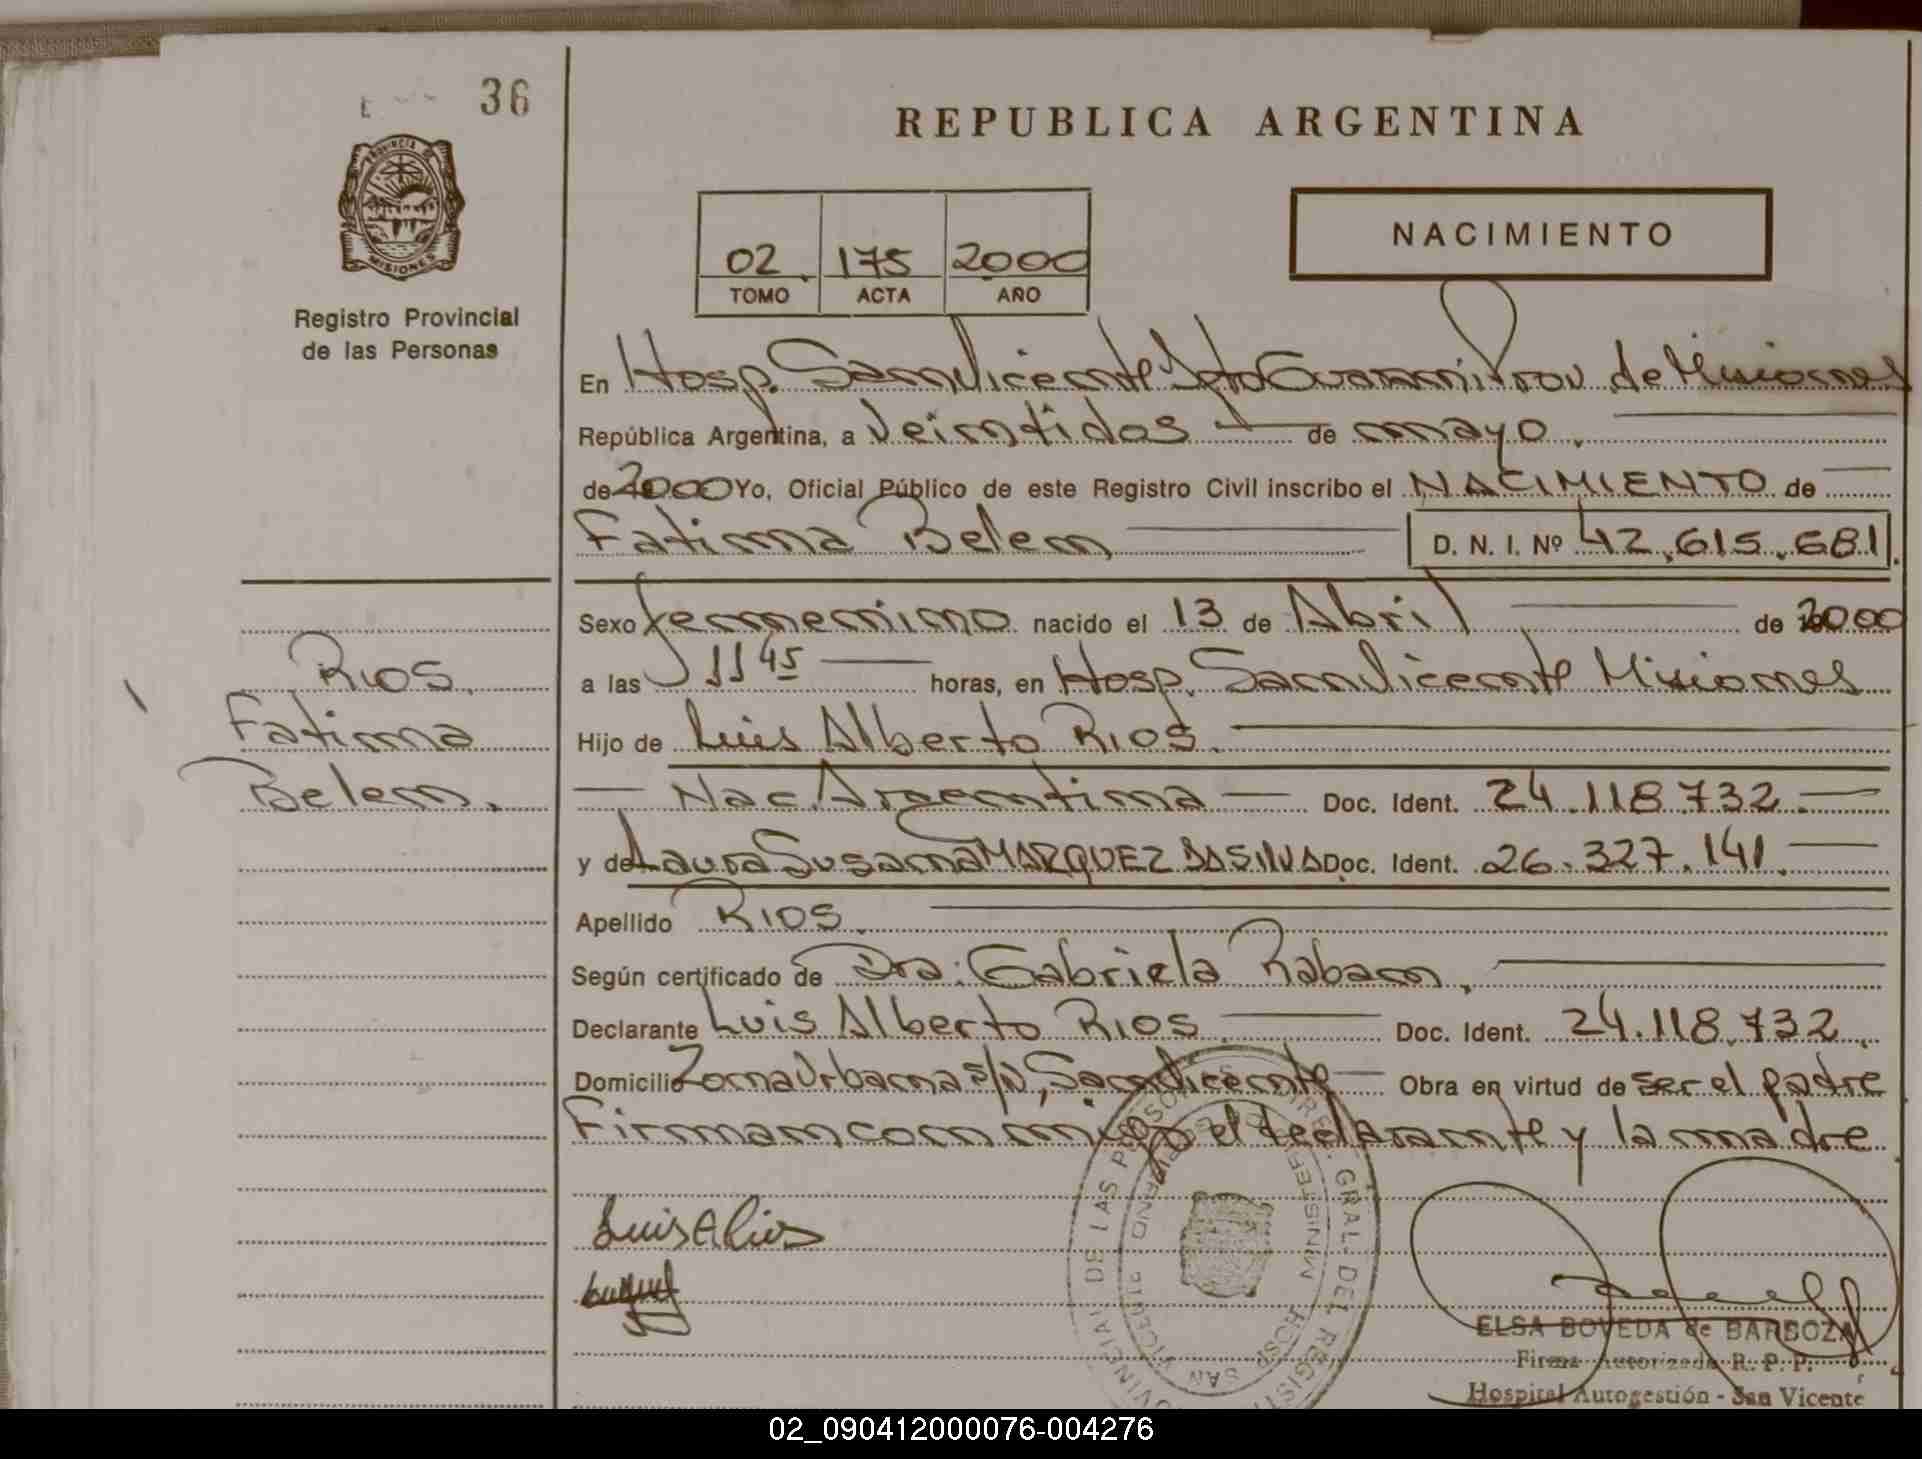 36
REPUBLICA ARGENTINA
PROVINCIA DE
MISIONES
Registro Provincial
de las Personas
02 175 2000
TOMO ACTA AÑO
NACIMIENTO
En Hosp. San Vicente Dpto Guaraní Prov de Misiones
República Argentina, a Veintidos de mayo
de 2000 Yo, Oficial Público de este Registro Civil inscribo el NACIMIENTO de
Fatima Belen D. N. I. Nº 42.615.681
Sexo femenino nacido el 13 de Abril de 2000
a las 11 45 horas, en Hosp. San Vicente Misiones
Hijo de Luis Alberto Rios.
Nac. Argentina Doc. Ident. 24.118.732
y de Laura Susana MARQUEZ DA SILVA Doc. Ident. 26.327.141
Apellido RIOS.
Según certificado de Dra: Gabriela Raban.
Declarante Luis Alberto Rios Doc. Ident. 24.118.732
Domicilio Zona Urbana s/n, San Vicente Obra en virtud de ser el padre
Firman conmigo el declarante y la madre
RIOS.
Fatima
Belen.
Luis A Rios
DE LAS PERSONAS DIREC. GRAL. DEL REGIST
MINISTERIO DE GOBIERNO
HOSP SAN VICENTE
ELSA BOVEDA de BARBOZA
Firma Autorizada R. P. P.
Hospital Autogestión - San Vicente
02_090412000076-004276